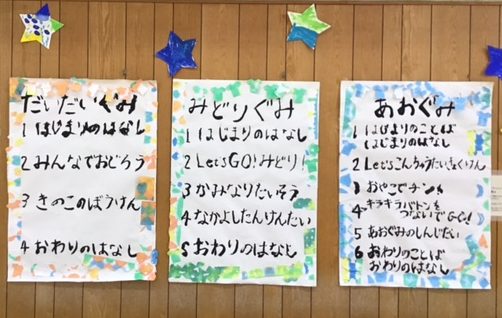 だいだいぐみ
1 はじまりのはなし
2 みんなでおどろう
3 きのこのぼうけん
4 おわりのはなし
みどりぐみ
1 はじまりのはなし
2 Let's GO! みどり!
3 かみなりたいそう
4 なかよしたんけんたい
5 おわりのはなし
あおぐみ
1 はじまりのことば
はじまりのはなし
2 Let'sこんちゅうたいそくけん
3 おやこでチン
4 キラキラバトンを
つないでGO!
5 あおぐみのしんじだい
6 おわりのことば
おわりのはなし